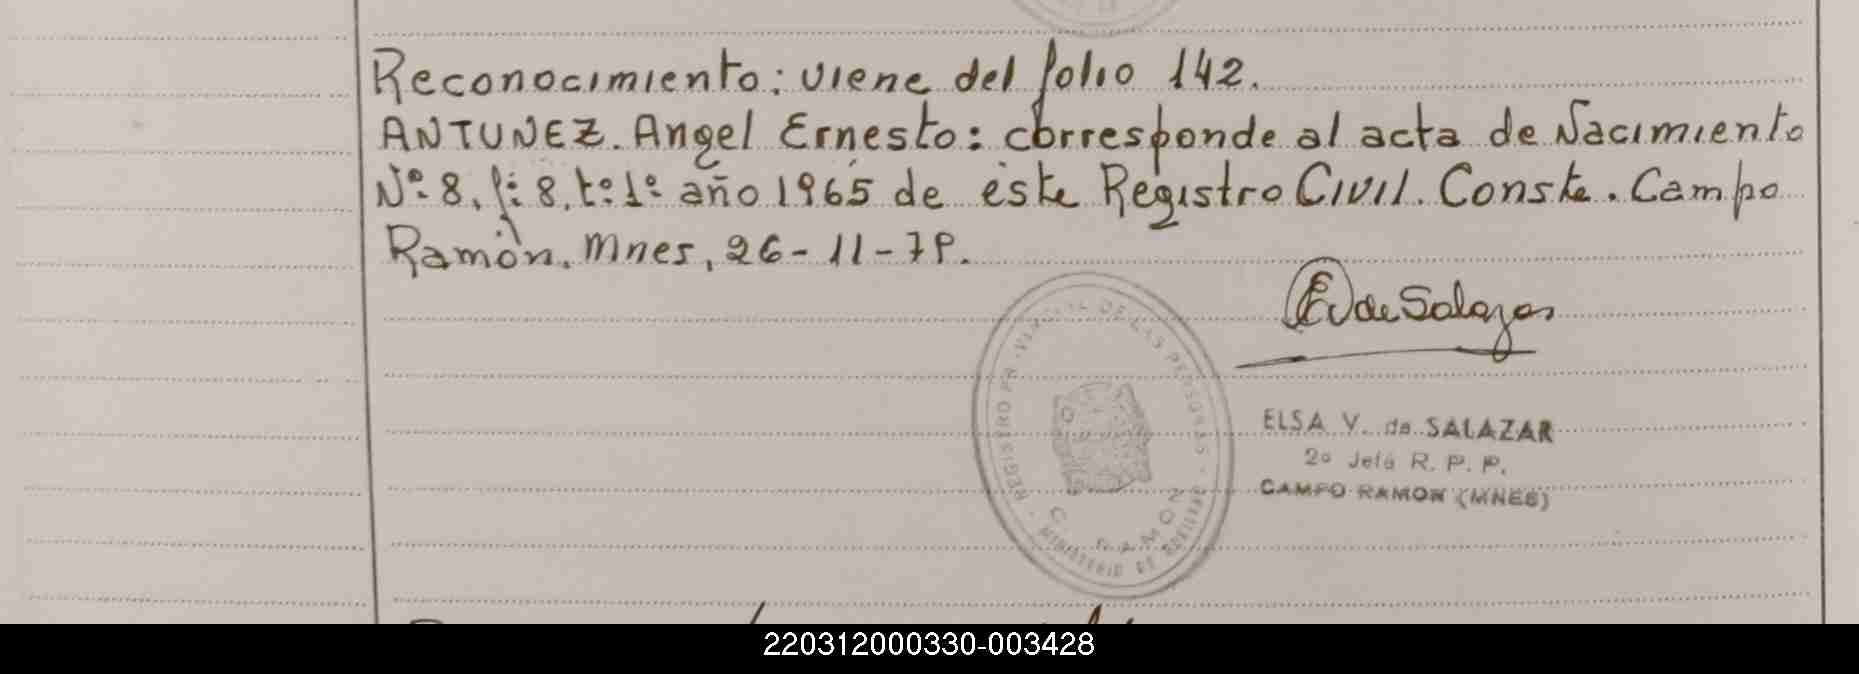 Reconocimiento: viene del folio 142.
ANTUNEZ. Angel Ernesto: corresponde al acta de Nacimiento
Nº 8, fº: 8, tº: 1º año 1965 de éste Registro Civil. Conste. Campo
Ramón. Mnes, 26-11-79.
EV de Salazar
REGISTRO PROVINCIAL DE LAS PERSONAS - MINISTERIO DE
C. RAMON
ELSA V. de SALAZAR
2º Jefe R. P. P.
CAMPO RAMON (MNES)
220312000330-003428